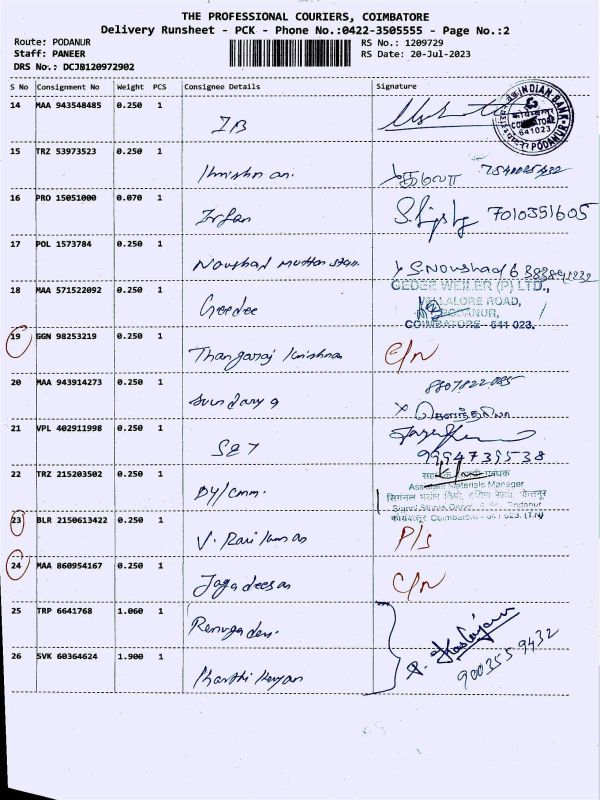 THE PROFESSIONAL COURIERS, COIMBATORE
Delivery Runsheet - PCK - Phone No.:0422-3505555 - Page No.:2
Route: PODANUR
Staff: PANEER
DRS No.: DCJB120972902
RS No.: 1209729
RS Date: 20-Jul-2023
S No Consignment No Weight PCS Consignee Details Signature
14 MAA 943548485 0.250 1
IB
INDIAN BANK
COIMBATORE
641023
PODANUR
15 TRZ 53973523 0.250 1
16 PRO 15051000 0.070 1
Irfan 7010351605
17 POL 1573784 0.250 1
Noushad Mutton Stan. S. Noushad
18 MAA 571522092 0.250 1
Geedee
GEDEE WEILER (P) LTD.,
VELLALORE ROAD,
PODANUR,
COIMBATORE - 641 023.
19 GGN 98253219 0.250 1
Thangaraj Krishna C/N
20 MAA 943914273 0.250 1
Soundarya
21 VPL 402911998 0.250 1
S&T
9994739538
22 TRZ 215203502 0.250 1
DY/Cmm.
Assistant Materials Manager
23 BLR 2150613422 0.250 1
V. Rai P/S
24 MAA 860954167 0.250 1
Jagadeesan C/N
25 TRP 6641768 1.060 1
Renugadevi
26 SVK 60364624 1.900 1
Karthikeyan
9003559432